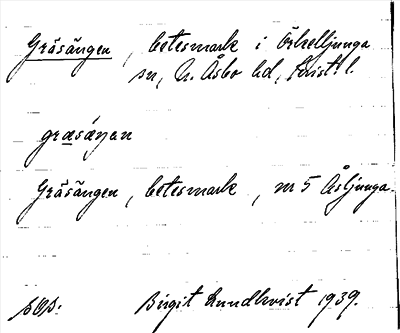 Gräsängen, betesmark i Örkelljunga
sn, N. Åsbo hd, Krist. l.
græsæŋən
Gräsängen, betesmark, nr 5 Åsljunga.
Birgit Lundkvist 1939.